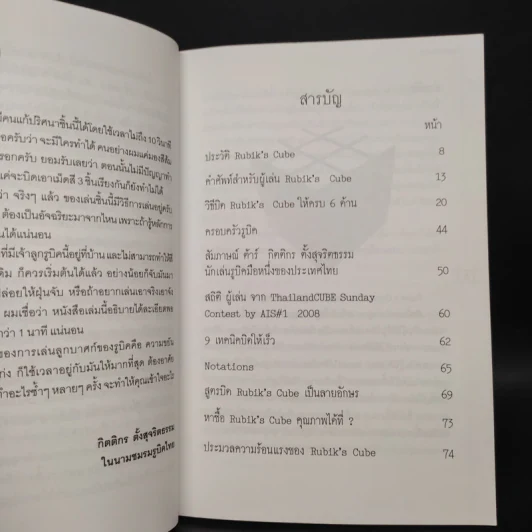 มีคนแก้ปริศนาชิ้นนี้ได้โดยใช้เวลาไม่ถึง 10 วินาที
อครับว่า จะมีใครทำได้ คนอย่างผมแค่มองสีส้ม
รอกครับ ยอมรับเลยว่า ตอนนั้นไม่มีปัญญาทำ
แค่จะบิดเอาเม็ดสี 3 ชิ้นเรียงกันก็ยังทำไม่ได้
ว่า จริงๆ แล้ว ของเล่นชิ้นนี้มีวิธีการเล่นอยู่ครับ
ต้องเป็นอัจฉริยะมาจากไหน เพราะถ้ารู้หลักการ
ได้แน่นอน
ที่มีเจ้าลูกรูบิคนี้อยู่ที่บ้าน และไม่สามารถทำให้สี
ดิม ก็ควรเริ่มต้นได้แล้ว อย่างน้อยก็จับมันมา
ปล่อยให้ฝุ่นจับ หรือถ้าอยากเล่นเอาจริงเอาจัง
ผมเชื่อว่า หนังสือเล่มนี้อธิบายได้ละเอียดพอ
กว่า 1 นาที แน่นอน
ของการเล่นลูกบาศก์ของรูบิคคือ ความขยัน
ก่ง ก็ใช้เวลาอยู่กับมันให้มากที่สุด ต้องอาศัย
ทำอะไรซ้ำๆ หลายๆ ครั้ง จะทำให้คุณเข้าใจอะไร
กิตติกร ตั้งสุจริตธรรม
ในนามชมรมรูบิคไทย
สารบัญ
หน้า
ประวัติ Rubik's Cube 8
คำศัพท์สำหรับผู้เล่น Rubik's Cube 13
วิธีบิด Rubik's Cube ให้ครบ 6 ด้าน 20
ครอบครัวรูบิค 44
สัมภาษณ์ ต้าร์ กิตติกร ตั้งสุจริตธรรม
นักเล่นรูบิคมือหนึ่งของประเทศไทย 50
สถิติ ผู้เล่น จาก ThailandCUBE Sunday
Contest by AIS#1 2008 60
9 เทคนิคบิดให้เร็ว 62
Notations 65
สูตรบิด Rubik's Cube เป็นลายอักษร 69
หาซื้อ Rubik's Cube คุณภาพได้ที่ ? 73
ประมวลความร้อนแรงของ Rubik's Cube 74